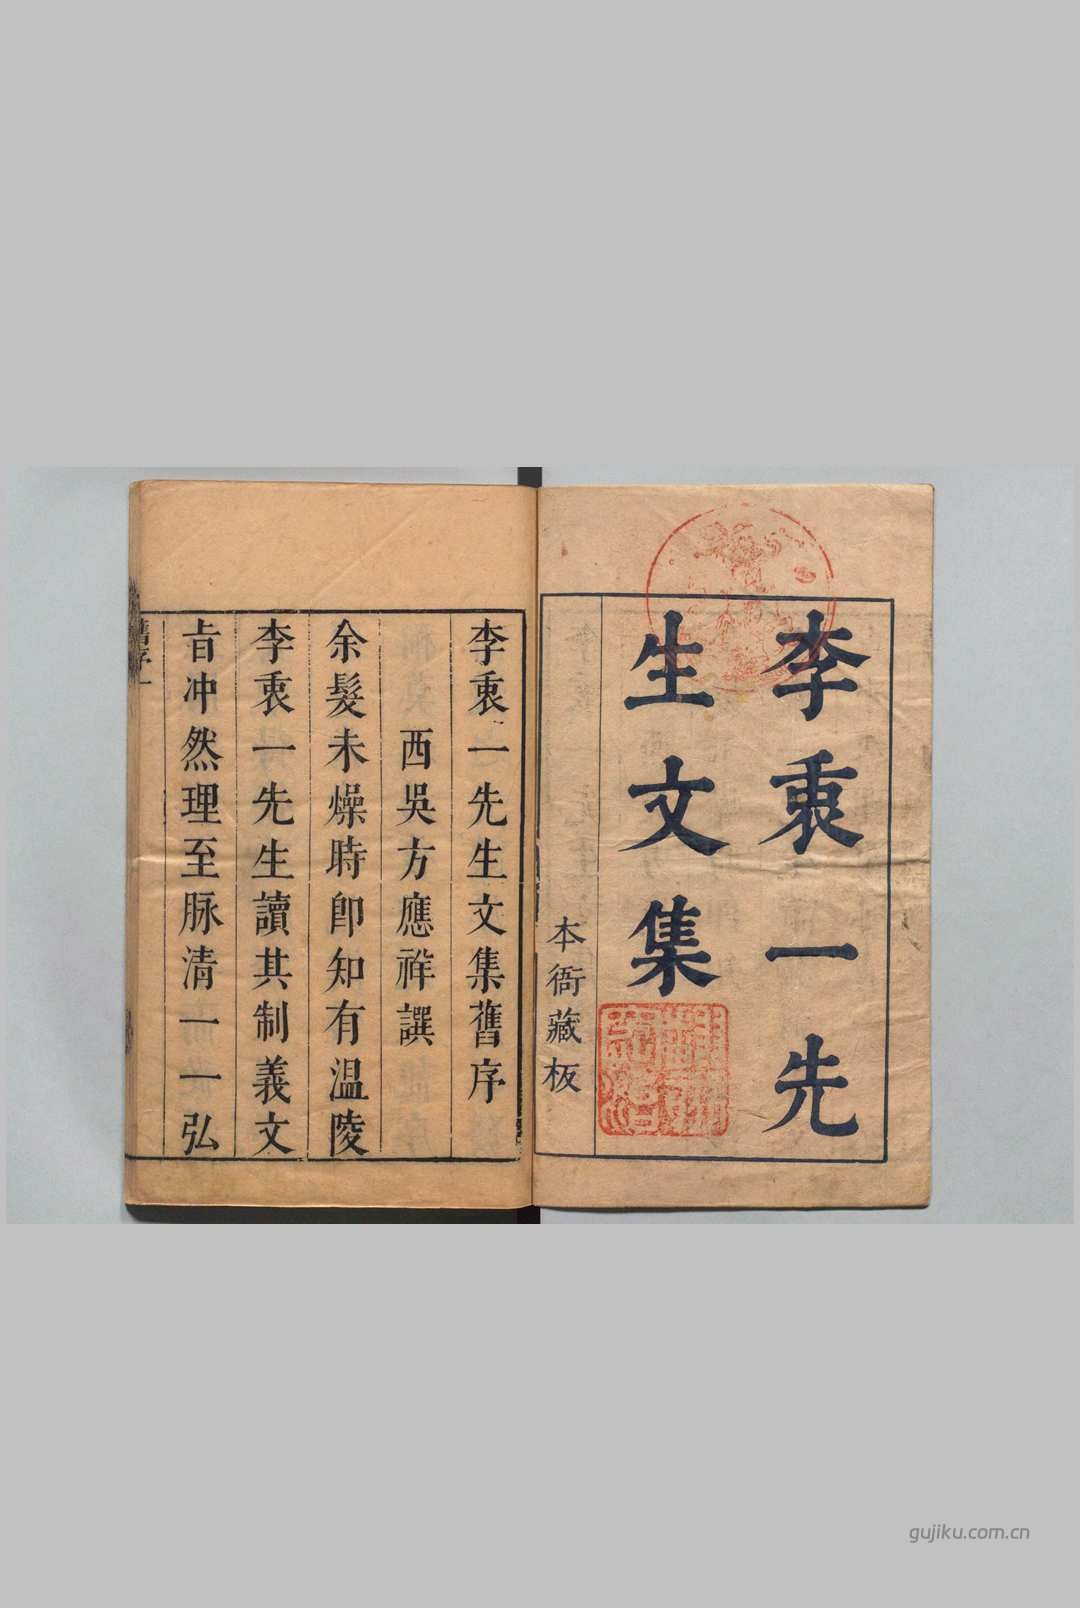 李衷一先
生文集
本衙藏板
李衷一先生文集舊序
西吳方應祥譔
余髮未燥時卽知有温陵
李衷一先生讀其制義文
旨冲然理至脉清一一弘
舊序一
gujiku.com.cn